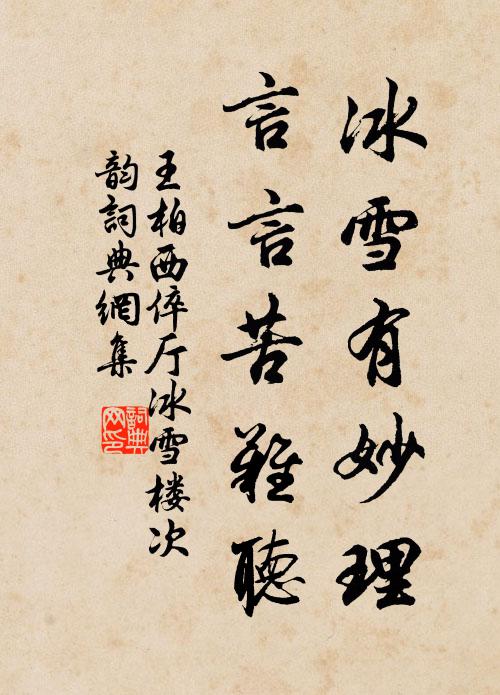 冰雪有妙理
言言苦難聽
王柏西倅厅冰雪楼次
韵詞典網集
詞典网印